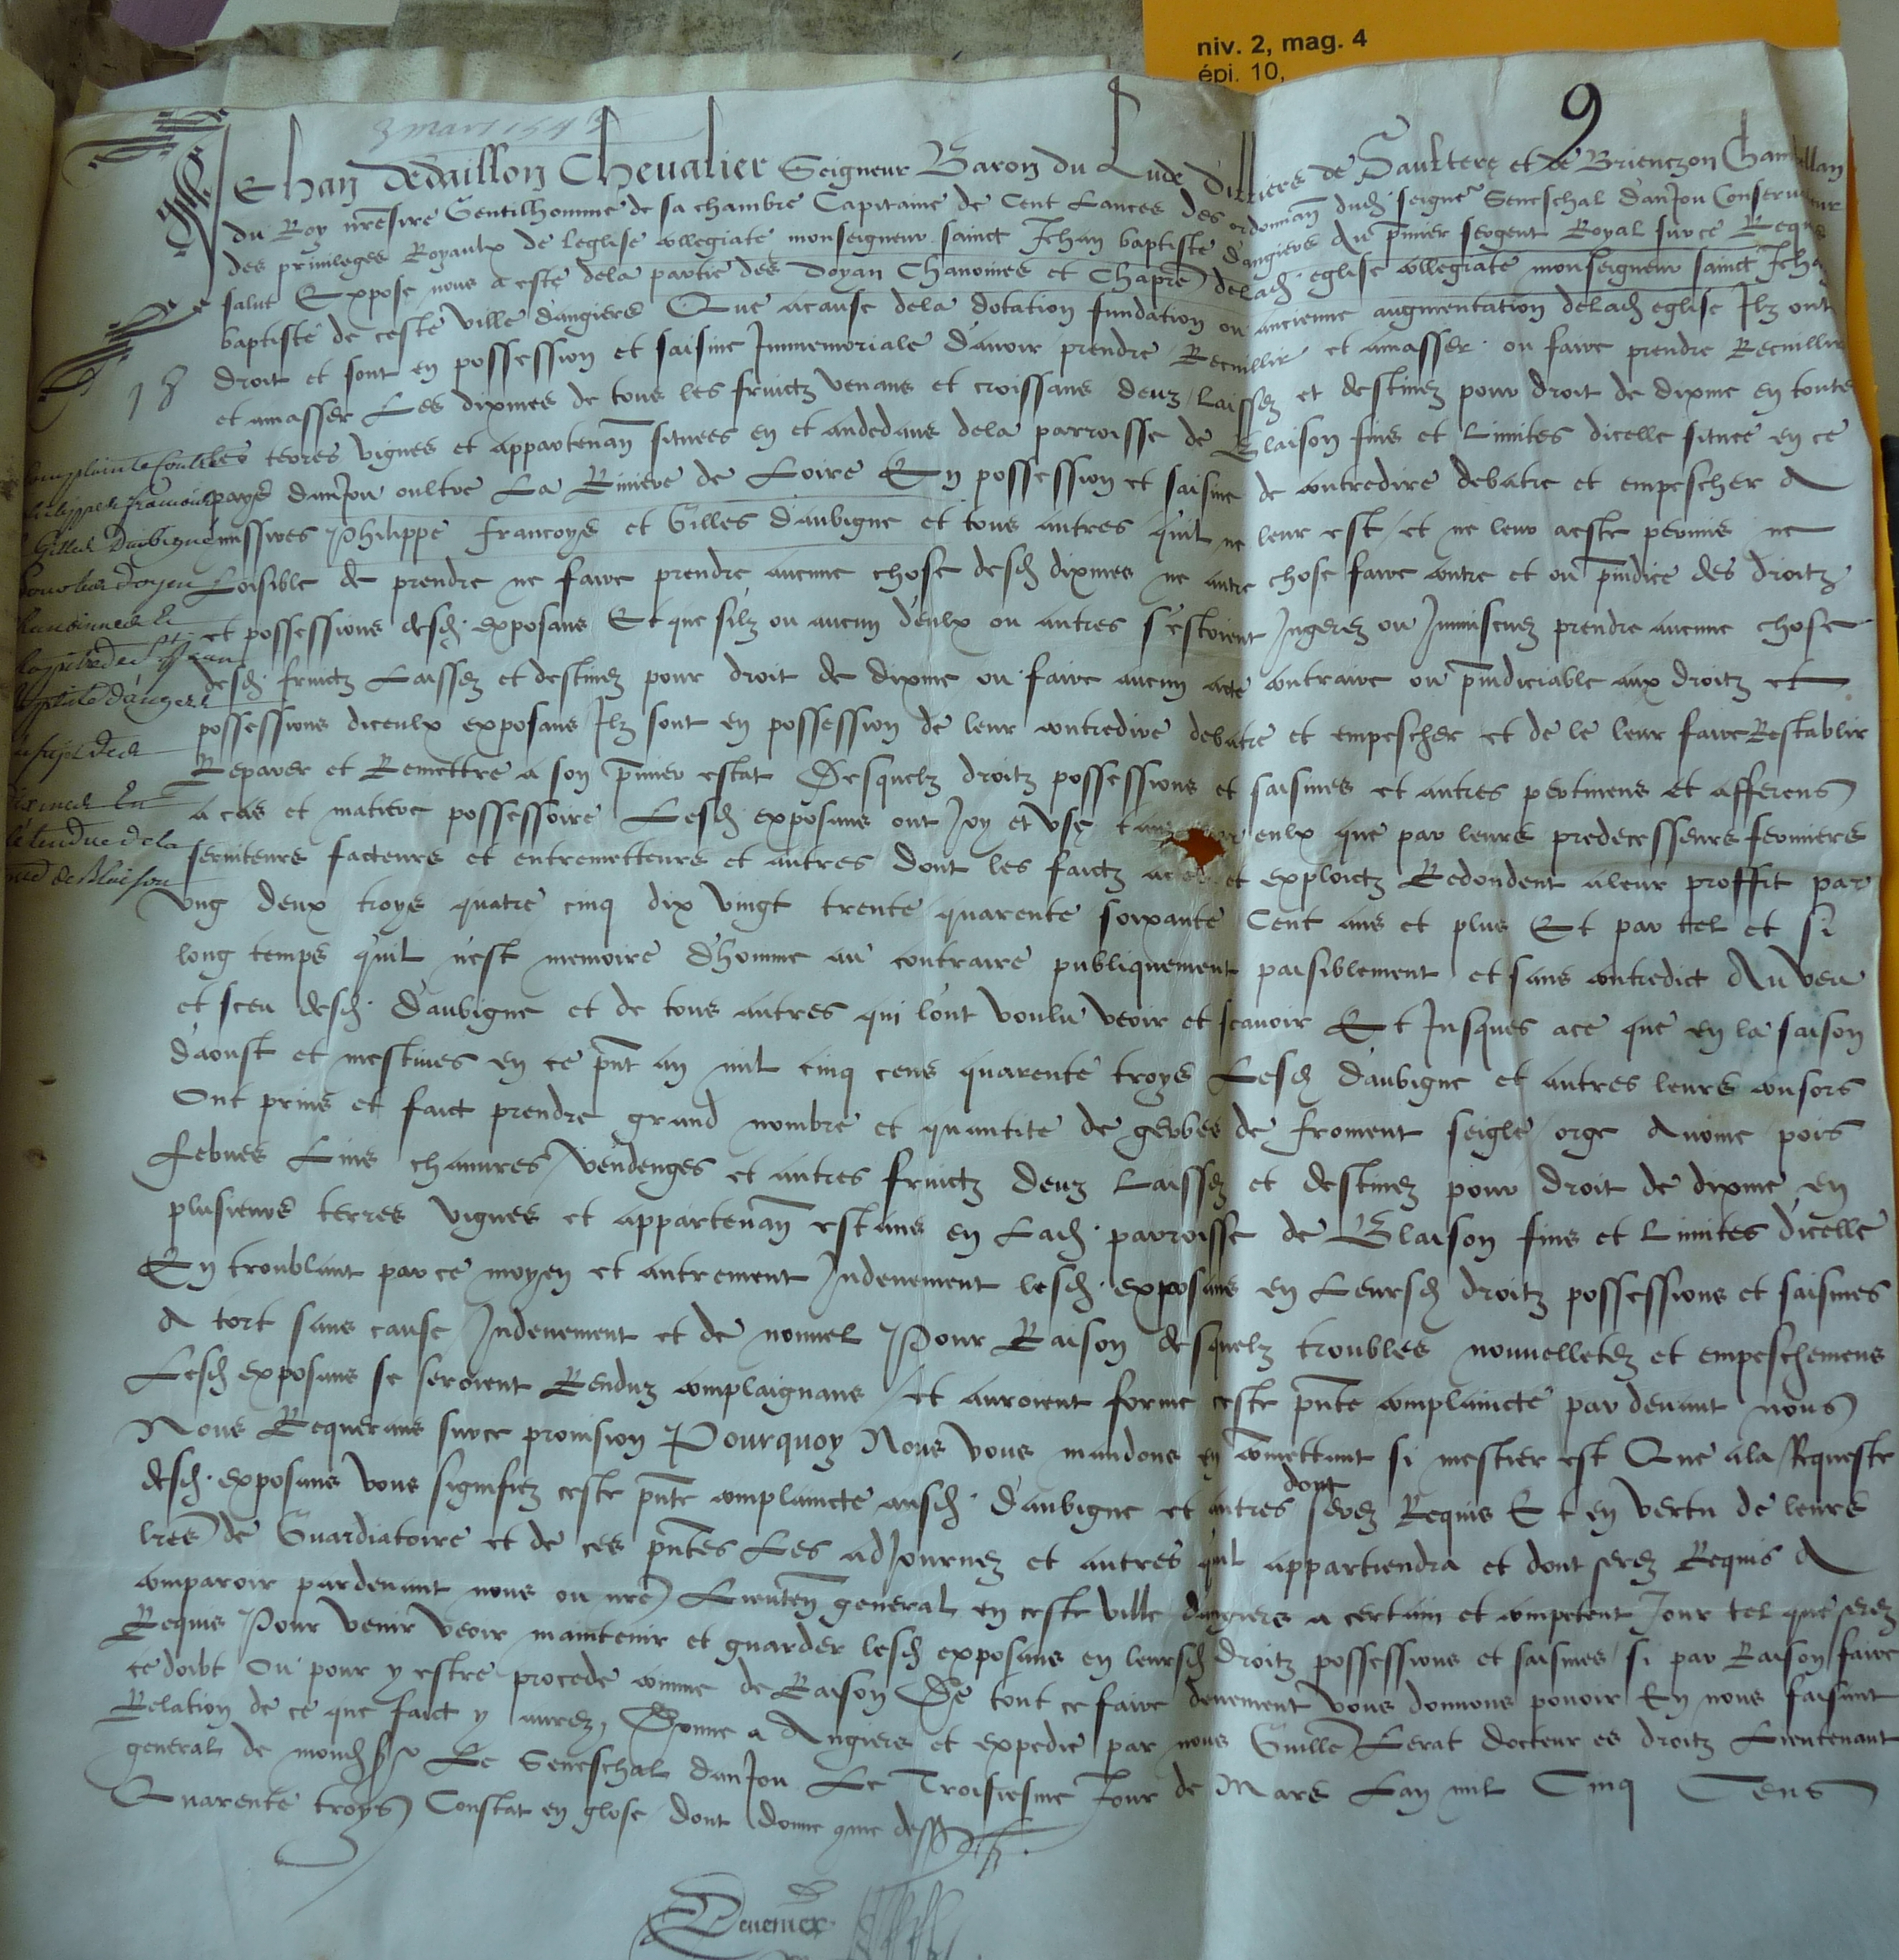 niv. 2, mag. 4
épi. 10,
9
3 mars 1543
Jehan dedaillon Chevalier Seigneur Baron du Lude dilliers de Saultere et de Brienczon Chambellan
du Roy nresire Gentilhomme de sa chambre Capitaine de Cent Lances des ordonnan dud seigne Seneschal danjou Conservateur
des privileges Royaulx de leglise collegiate monseigneur sainct Jehan baptiste dangiers Au pmier sergent Royal sur ce Requis
salut Expose nous a este dela partie des Doyan Chanoines et Chapre delad eglise collegiate monseigneur sainct Jehan
baptiste de ceste ville dangiers Que acause dela dotation fundation ou ancienne augmentation delad eglise Ilz ont
18
droit et sont en possession et saisine Immemoriale davoir prendre Recueillir et amasser ou faire prendre Recueillir
et amasser Les dixmes de tous les fruictz venans et croissans deuz Laissez et destinez pour droit de dixme en toutes
les terres vignes et appartenan situees en et audedans dela parroisse de Blaison fins et Limites dicelle situee en ce
pays danjou oultre La Riviere de Loire En possession et saisine de contredire debatre et empescher A
missires Philippe Francoys et Gilles daubigne et tous autres quil ne leur est et ne leur aeste permis ne
Loisible de prendre ne faire prendre aucune chose desd dixmes ne autre chose faire contre et ou pindice des droitz
et possessions desd exposans Et que silz ou aucun deulx ou autres sestoient Ingerez ou Immiscuez prendre aucune chose
desd fruictz Laissez et destinez pour droit de dixme ou faire aucun acte contraire ou pindiciable aux droitz et
possessions diceulx exposans Ilz sont en possession de leur contredire debatre et empescher et de le leur faire Restablir
Reparer et Remettre a son pmier estat Desquelz droitz possessions et saisines et autres pertinens et afferens
a cas et matiere possessoire Lesd exposans ont Joy et use tant par eulx que par leurs predecesseurs fermiers
serviteurs facteurs et entremetteurs et autres dont les faictz actes et exploictz Redondent aleur proffit par
ung deux troys quatre cinq dix vingt trente quarente soixante Cent ans et plus Et par tel et si
long temps quil nest memoire dhomme au contraire publiquement paisiblement et sans contredict Au veu
et sceu desd daubigne et de tous autres qui lont voulu veoir et scavoir Et Jusques ace que en la saison
daoust et mestives en ce pnt an mil cinq cens quarente troys Lesd daubigne et autres leurs consors
Ont prins et faict prendre grand nombre et quantite de gerbes de froment seigle orge Avoine pois
febves Lins chanvres vendenges et autres fruictz deuz Laissez et destinez pour droit de dixme en
plusieurs terres vignes et appartenan estans en Lad parroisse de Blaison fins et Limites dicelle
En troublant par ce moyen et autrement Indeuement lesd exposans en Leursd droitz possessions et saisines
A tort sans cause Indeuement et de nouvel Pour Raison desquelz troubles nouvelletez et empeschemens
Lesd exposans se seroient Renduz complaignans et auroient forme ceste pnte complaincte par devant nous
Nous Requerans sur ce provision Pourquoy Nous vous mandons en comettant si mestier est Que ala Requeste
desd exposans vous signifiez ceste pnte complaincte ausd daubigne et autres dont serez Requis Et en vertu de leurs
lres de Guardiatoire et de ces pntes Les adJournez et autres quil appartiendra et dont serez Requis A
comparoir pardevant nous ou nre Lieuten general en ceste ville dangiers a certain et competent Jour tel que serez
Requis Pour venir veoir maintenir et guarder lesd exposans en leursd droitz possessions et saisines si par Raison faire
ce doibt Ou pour y estre procede comme de Raison De tout ce faire deuement vous donnons povoir En nous faisant
Relation de ce que faict y aurez Donne a Angiers et expedie par nous Guille Lerat docteur es droitz Lieutenant
general de mond sr Le Seneschal danJou Le Troisiesme Jour de Mars Lan mil Cinq Cens
Quarente troys Constat en glose dont donne come dess
complainte contre les
philippe francois
Gilles Daubigné
pour les doyen
chanoines et
chapitre de St Jean
Baptiste d'angers
au sujet des
dixmes en
l'etendue de la
de Blaison